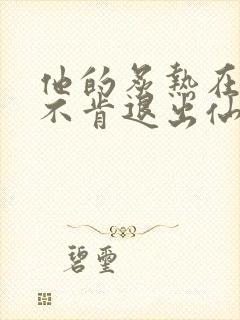 他的炙热在
不肯退出仙
碧玺